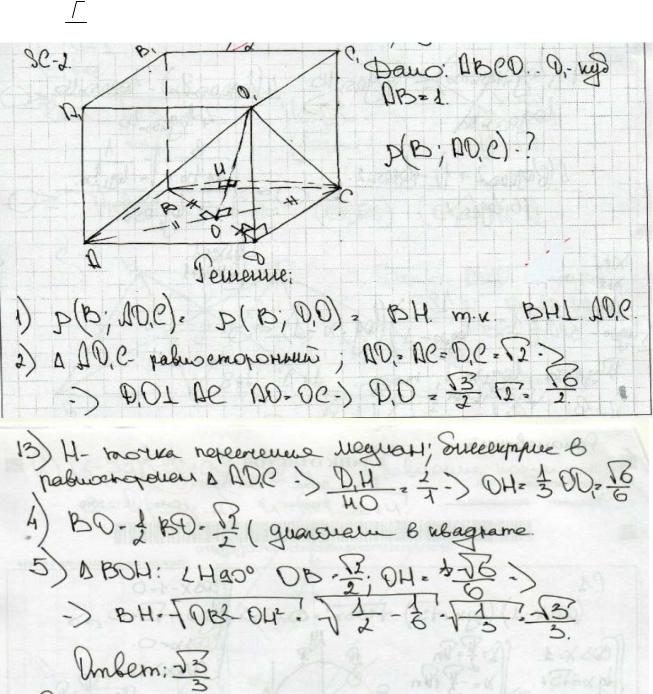 √
ЗС-2.
B₁ C₁
A₁ D₁
H
B C
O
A D
Дано: ABCD...D₁-куб
AB=1.
ρ(B; AD₁C)-?
Решение:
1) ρ(B; AD₁C)= ρ(B; D₁O) = BH т.к. BH⊥ AD₁C.
2) △ AD₁C- равносторонний; AD₁=AC=D₁C=√2 ->
-> D₁O⊥ AC AO=OC-> D₁O = √3/2 √2= √6/2
13) H- точка пересечения медиан; биссектрис в
равностороннем △ AD₁C -> D₁H/HO = 2/1 -> OH= 1/3 OD₁= √6/6
4) BO= 1/2 BD= √2/2 (диагонали в квадрате.
5) △ BOH: ∠H90° OB = √2/2; OH = √6/6 ->
-> BH= √OB²-OH² = √1/2 - 1/6 = √1/3 = √3/3.
Ответ: √3/3